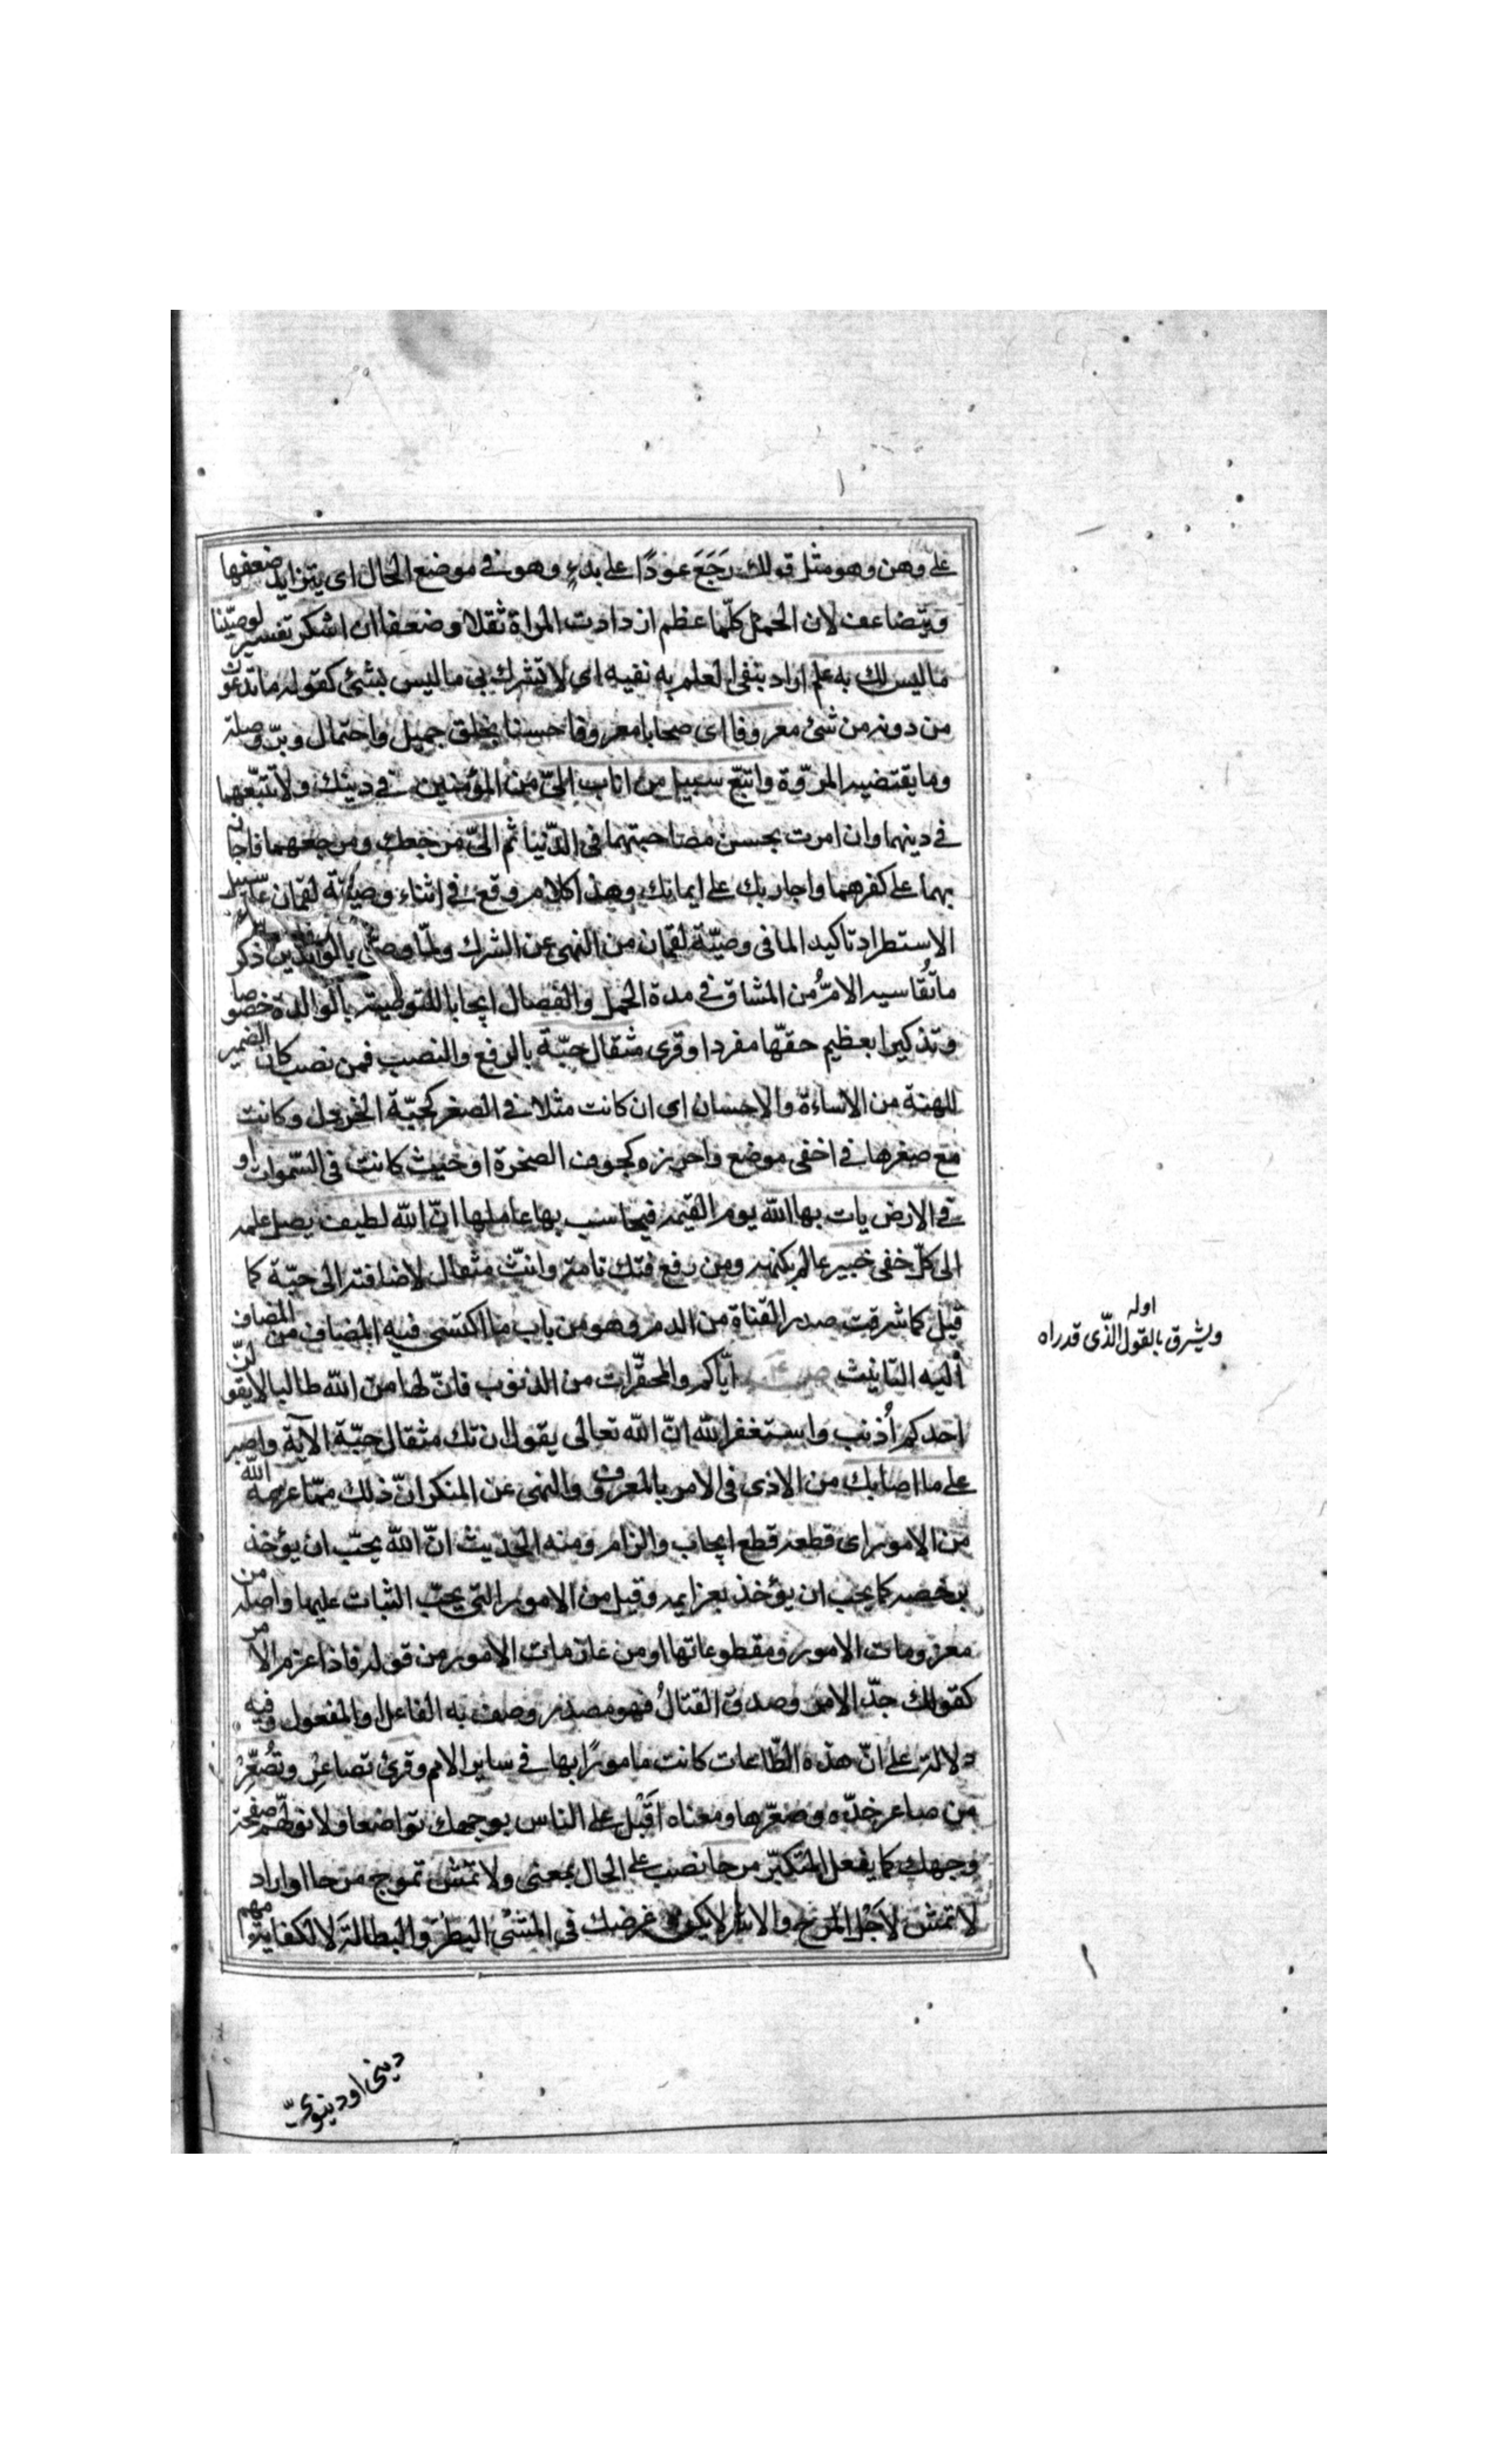 على وهن وهو مثل قولك رَجَعَ عودًا على بدءٍ وهو فى موضع الحال اى يتزايد ضعفها
ويتضاعف لان الحمل كلّما عظم ازدادت المراة ثقلا وضعفا ان اشكر تفسير لوصيّنا
ما ليس لك به علم اراد بنفى العلم به نفيه اى لا تشرك بى ما ليس بشئ كقوله ما تدعون
من دونه من شئ معروفا اى صحابا معروفا حسنا بخلق جميل واحتمال وبرّ وصلة
وما يقتضيه المروّة واتبع سبيل من اناب الىّ من المؤمنين فى دينك ولا تتبّعهما
فى دينهما وان امرت بحسن مصاحبتهما فى الدّنيا ثم الىّ مرجعك ومرجعهما فاجازيهما
بهما على كفرهما واجازيك على ايمانك وهذا كلام وقع فى اثناء وصيّة لقمان على سبيل
الاستطراد تاكيدا لما فى وصيّة لقمان من النهى عن الشرك ولمّا وصّى بالوالدين ذكر
ما تُقاسيه الامّ من المشاق فى مدة الحمل والفصال ايجابا للتوصية بالوالدة خصوصا
وتذكيرا بعظيم حقّها مفردا وقرى مثقال حبّة بالرفع والنصب فمن نصب كان الضمير
للهنة من الاساءة والاحسان اى ان كانت مثلا فى الصغر كحبّة الخردل وكانت
مع صغرها فى اخفى موضع واحرزه كجوف الصخرة او حيث كانت فى السّموات او
فى الارض يات بها الله يوم القيمه فيحاسب بها عاملها انّ الله لطيف يصل علمه
الى كلّ خفى خبير عالم بكنهه ومن رفع فتك تامة وانّث مثقال لاضافته الى حبّة كا
قيل كما شرقت صدر القناة من الدم وهو من باب ما اكتسى فيه المضاف من المضاف
اليه التانيث ايّاكم والمحقّرات من الذنوب فانّ لها من الله طالبا لا يقولنّ
احدكم أُذنب واستغفر الله انّ الله تعالى يقول ان تك مثقال حبّة الآية واصبر
على ما اصابك من الاذى فى الامر بالمعروف والنهى عن المنكر انّ ذلك ممّا عزمه الله
من الامور اى قطعه قطع ايجاب والزام ومنه الحديث انّ الله يحبّ ان يؤخذ
برخصه كما يحب ان يؤخذ بعزايمه وقيل من الامور التى يجبّ الثبات عليها واصله من
معزومات الامور ومقطوعاتها او من عازمات الامور من قوله فاذا عزم الامر
كقولك جدّ الامر وصدق القتالُ فهو مصدر وصف به الفاعل او المفعول وفيه
دلالة على انّ هذه الطّاعات كانت مامورًا بها فى ساير الامم وقرئ تصاعِر وتُصَعِّرْ
من صاعر خدّه وصعّرها ومعناه اَقْبِل على الناس بوجهك تواضعا ولا تولّهم صفحة
وجهك كما يفعل المتكبّر مرحا نصب على الحال بمعنى ولا تمش تموج مرحا او اراد
لا تمش لاَجْل المرح والاشر لا يكون غرضك فى المشى البطر والبطالة لا لكفاية مهم
اوله
ويشرق بالقول الذّى قد راه
دينى او دنيوىّ